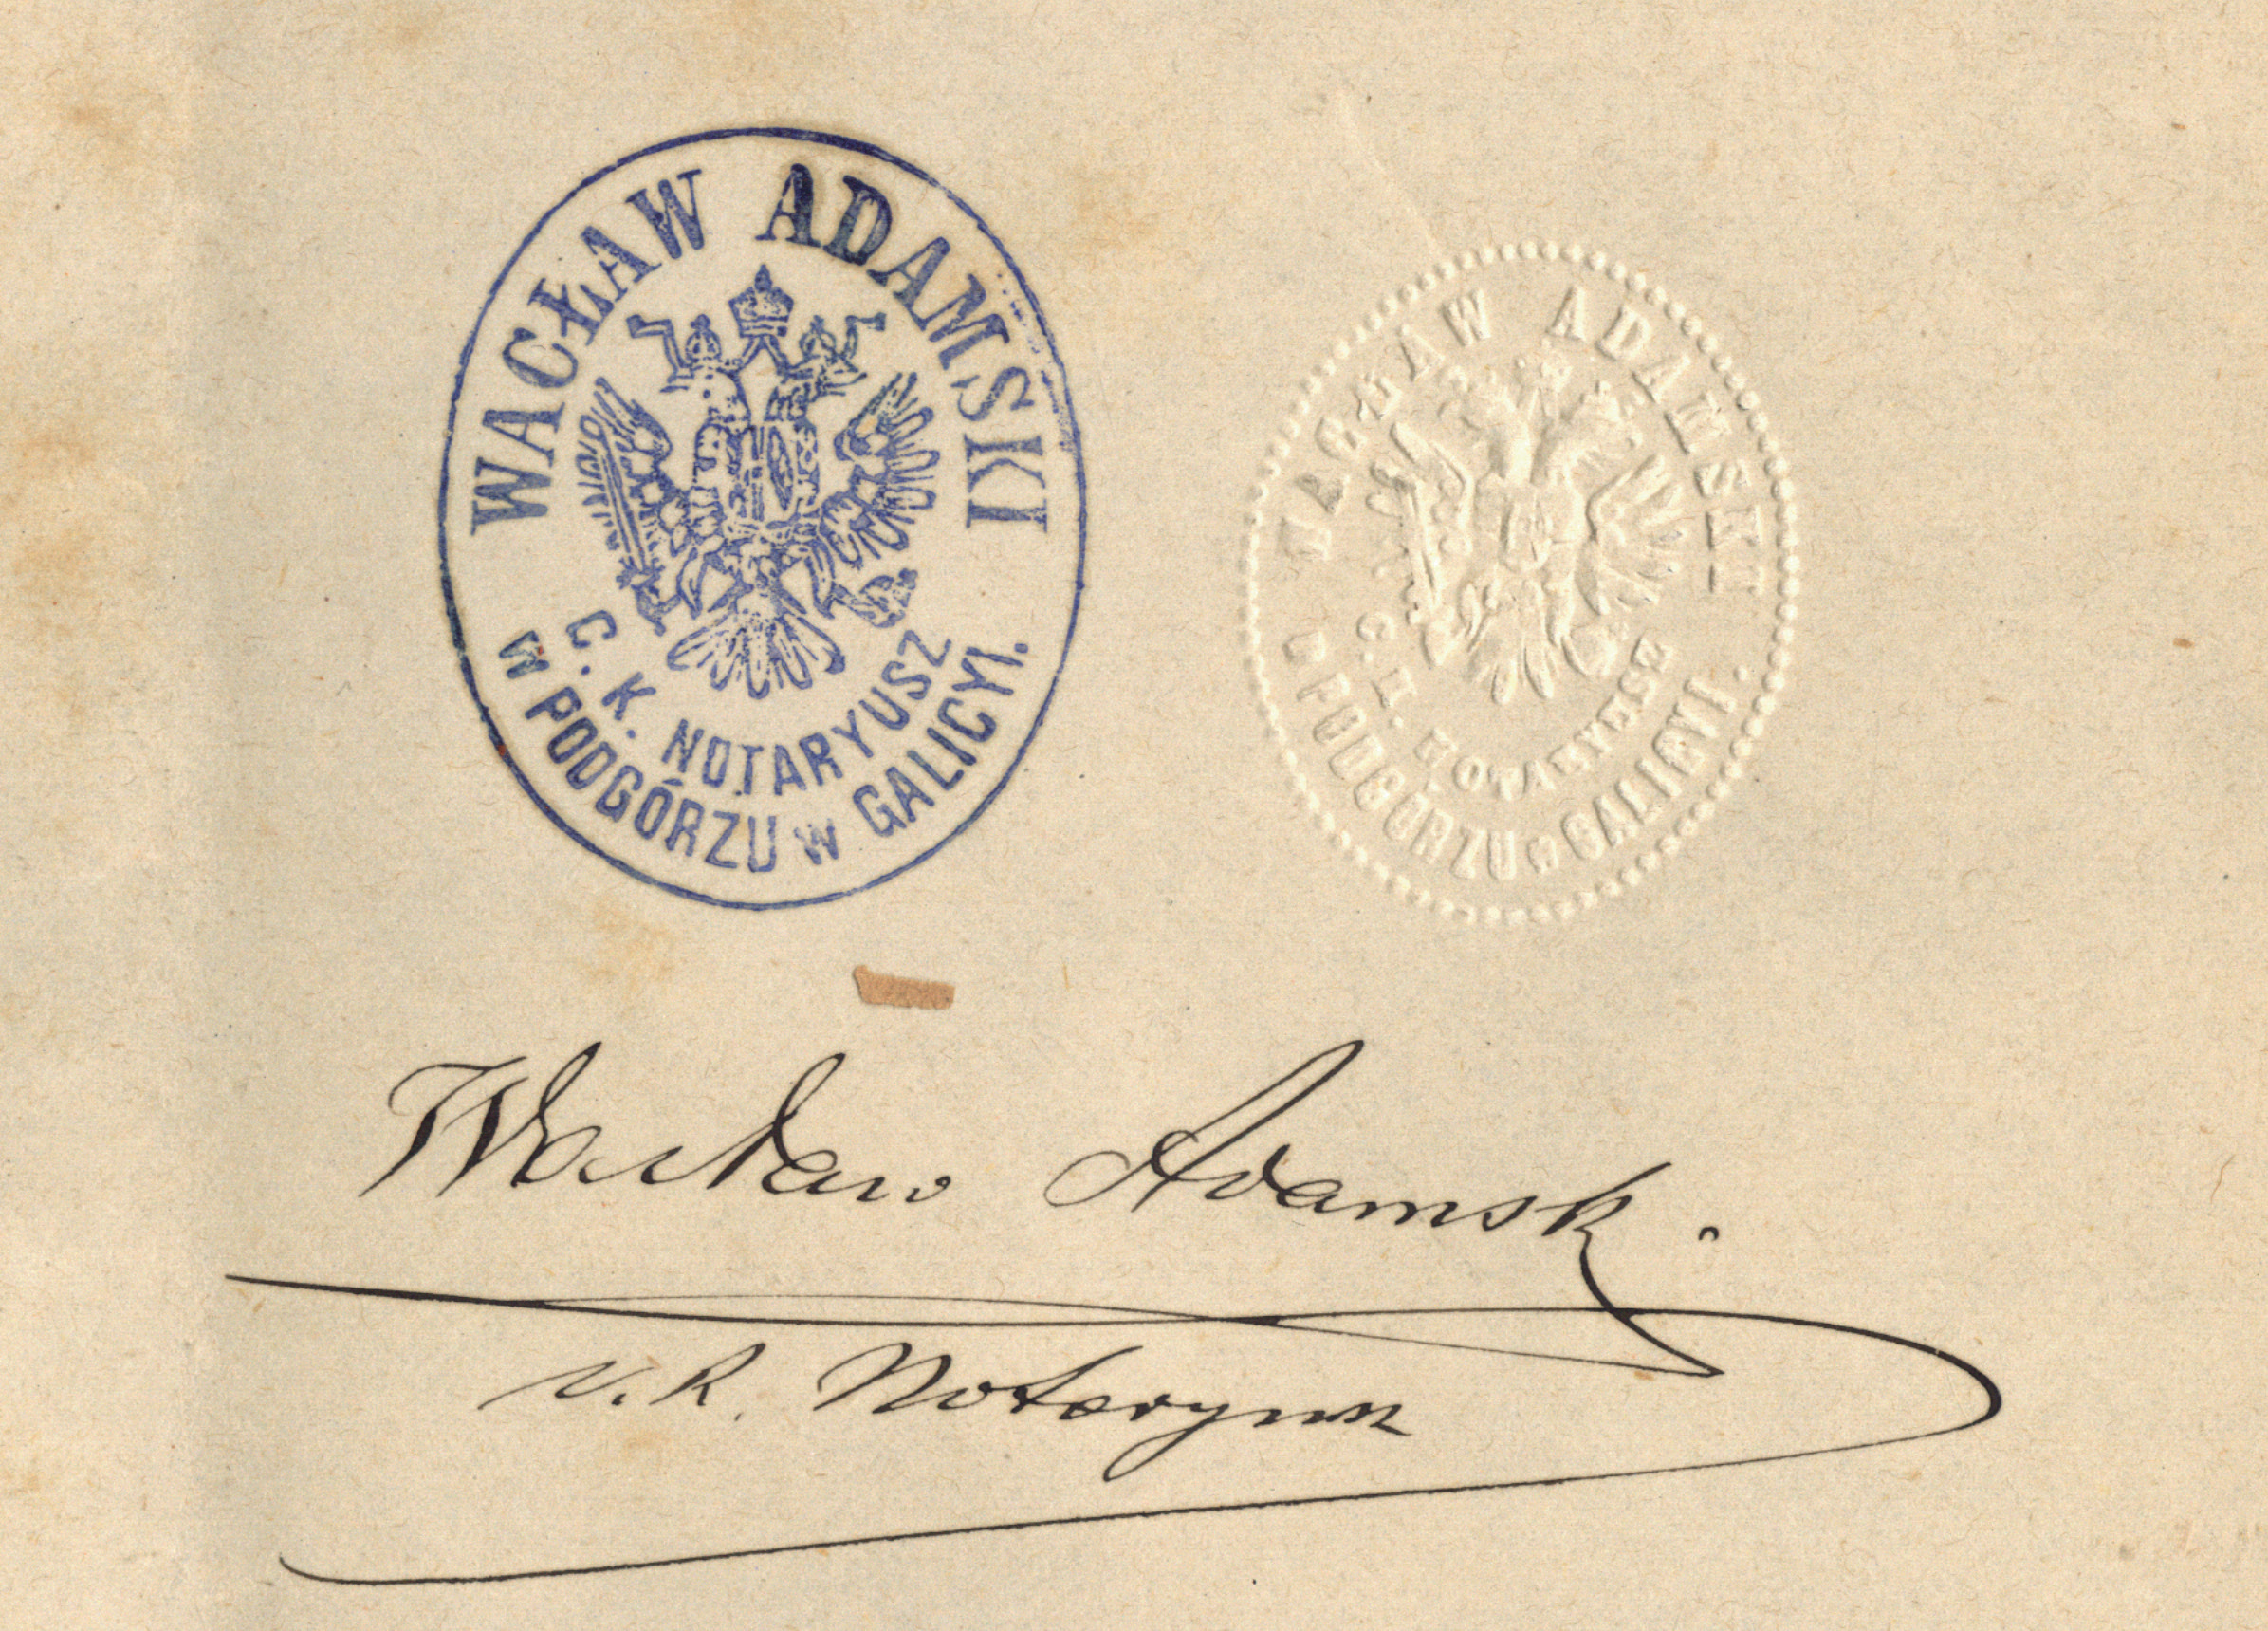 WACŁAW ADAMSKI
C. K. NOTARYUSZ
W PODGÓRZU W GALICYI.
WACŁAW ADAMSKI
C. K. NOTARYUSZ
W PODGÓRZU W GALICYI.
Wacław Adamski
c. k. Notaryusz